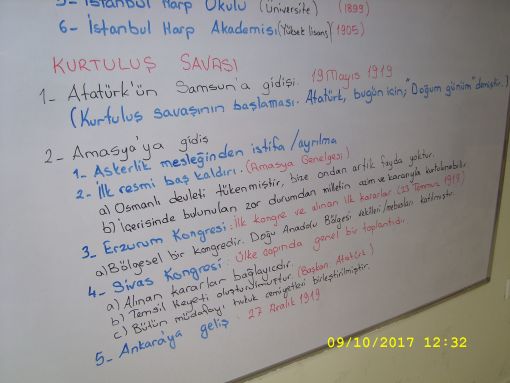 5- İstanbul Harp Okulu (Üniversite) (1899)
6- İstanbul Harp Akademisi (Yüksek lisans) (1905)
KURTULUŞ SAVAŞI
1- Atatürk'ün Samsun'a gidişi. 19 Mayıs 1919
(Kurtuluş savaşının başlaması. Atatürk, bugün için; "Doğum günüm" demiştir..)
2- Amasya'ya gidiş
1- Askerlik mesleğinden istifa / ayrılma
2- İlk resmi baş kaldırı. (Amasya Genelgesi)
a) Osmanlı devleti tükenmiştir, bize ondan artık fayda yoktur.
b) İçerisinde bulunulan zor durumdan milletin azim ve kararıyla kurtulunabilir.
3- Erzurum Kongresi: İlk kongre ve alınan ilk kararlar (23 Temmuz 1919)
a) Bölgesel bir kongredir. Doğu Anadolu Bölgesi vekilleri/mebusları katılmıştır.
4- Sivas Kongresi: Ülke çapında genel bir toplantıdır.
a) Alınan kararlar bağlayıcıdır.
b) Temsil Heyeti oluşturulmuştur. (Başkan: Atatürk)
c) Bütün müdafayı hukuk cemiyetleri birleştirilmiştir.
5- Ankara'ya geliş: 27 Aralık 1919
09/10/2017 12:32